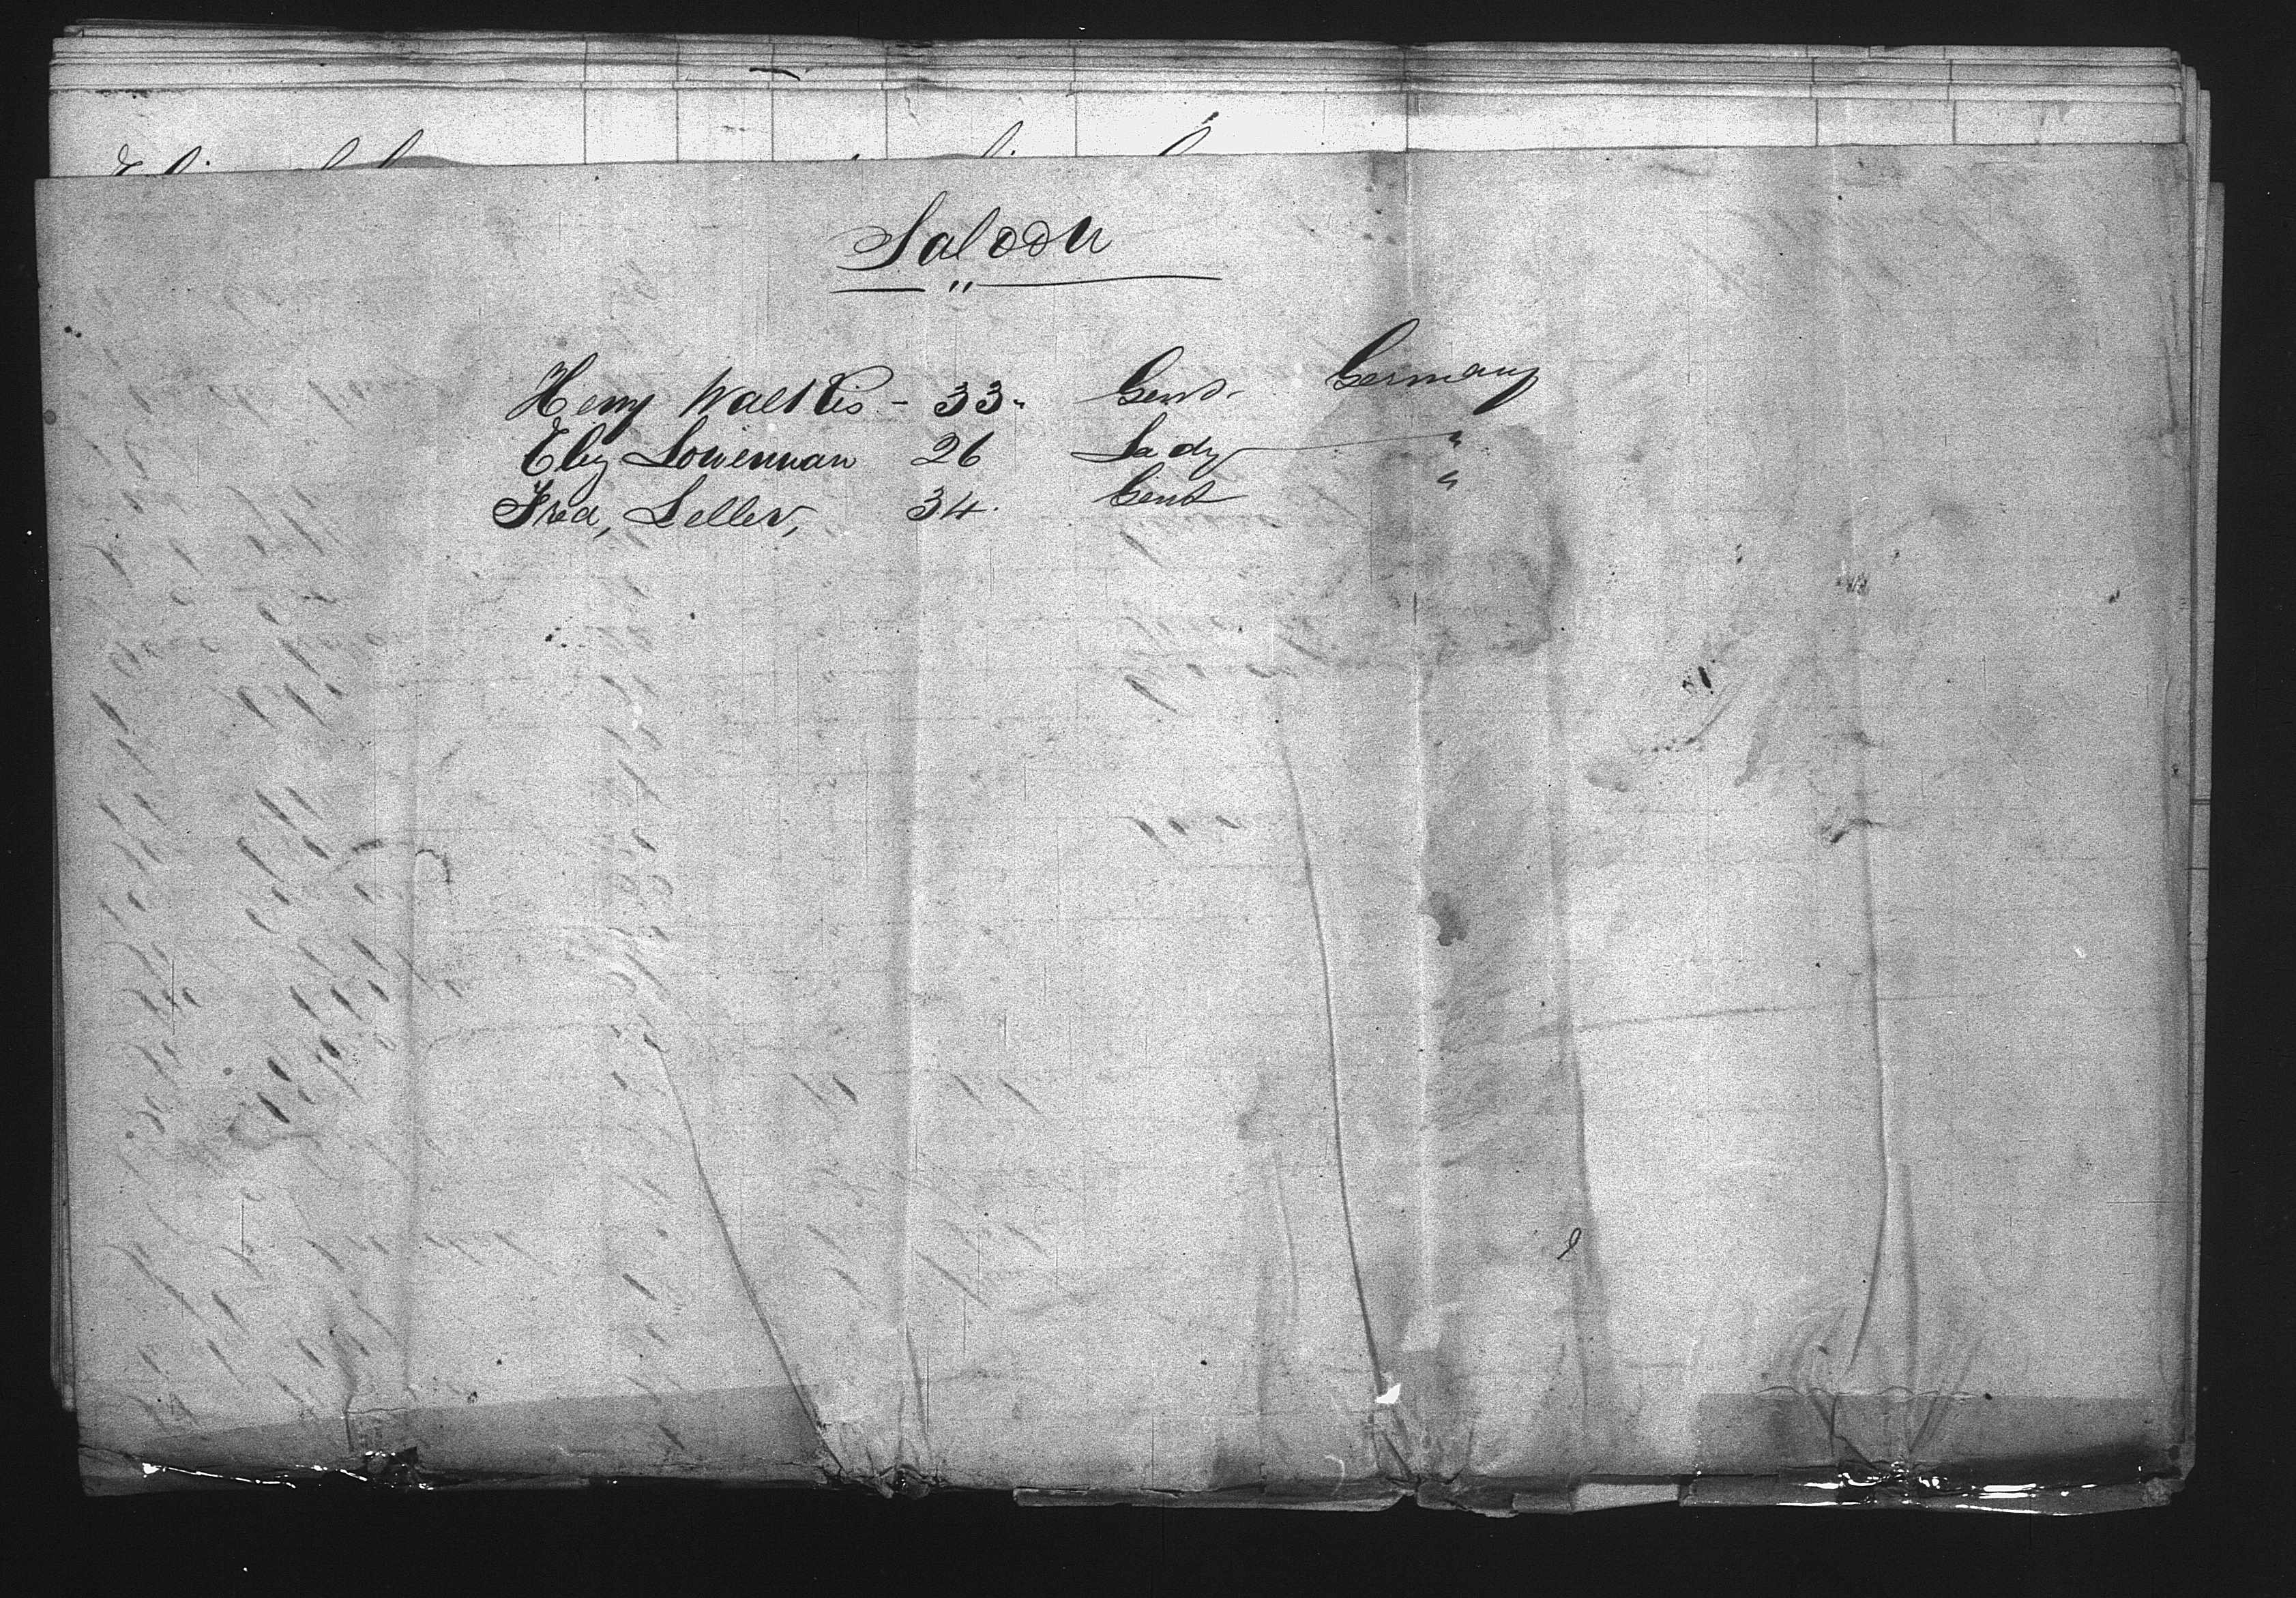 Saloon
"
Henry - 33 " Gent Germany
Eliz Lowenman 26 Lady "
Fred, Seller, 34. Gent "